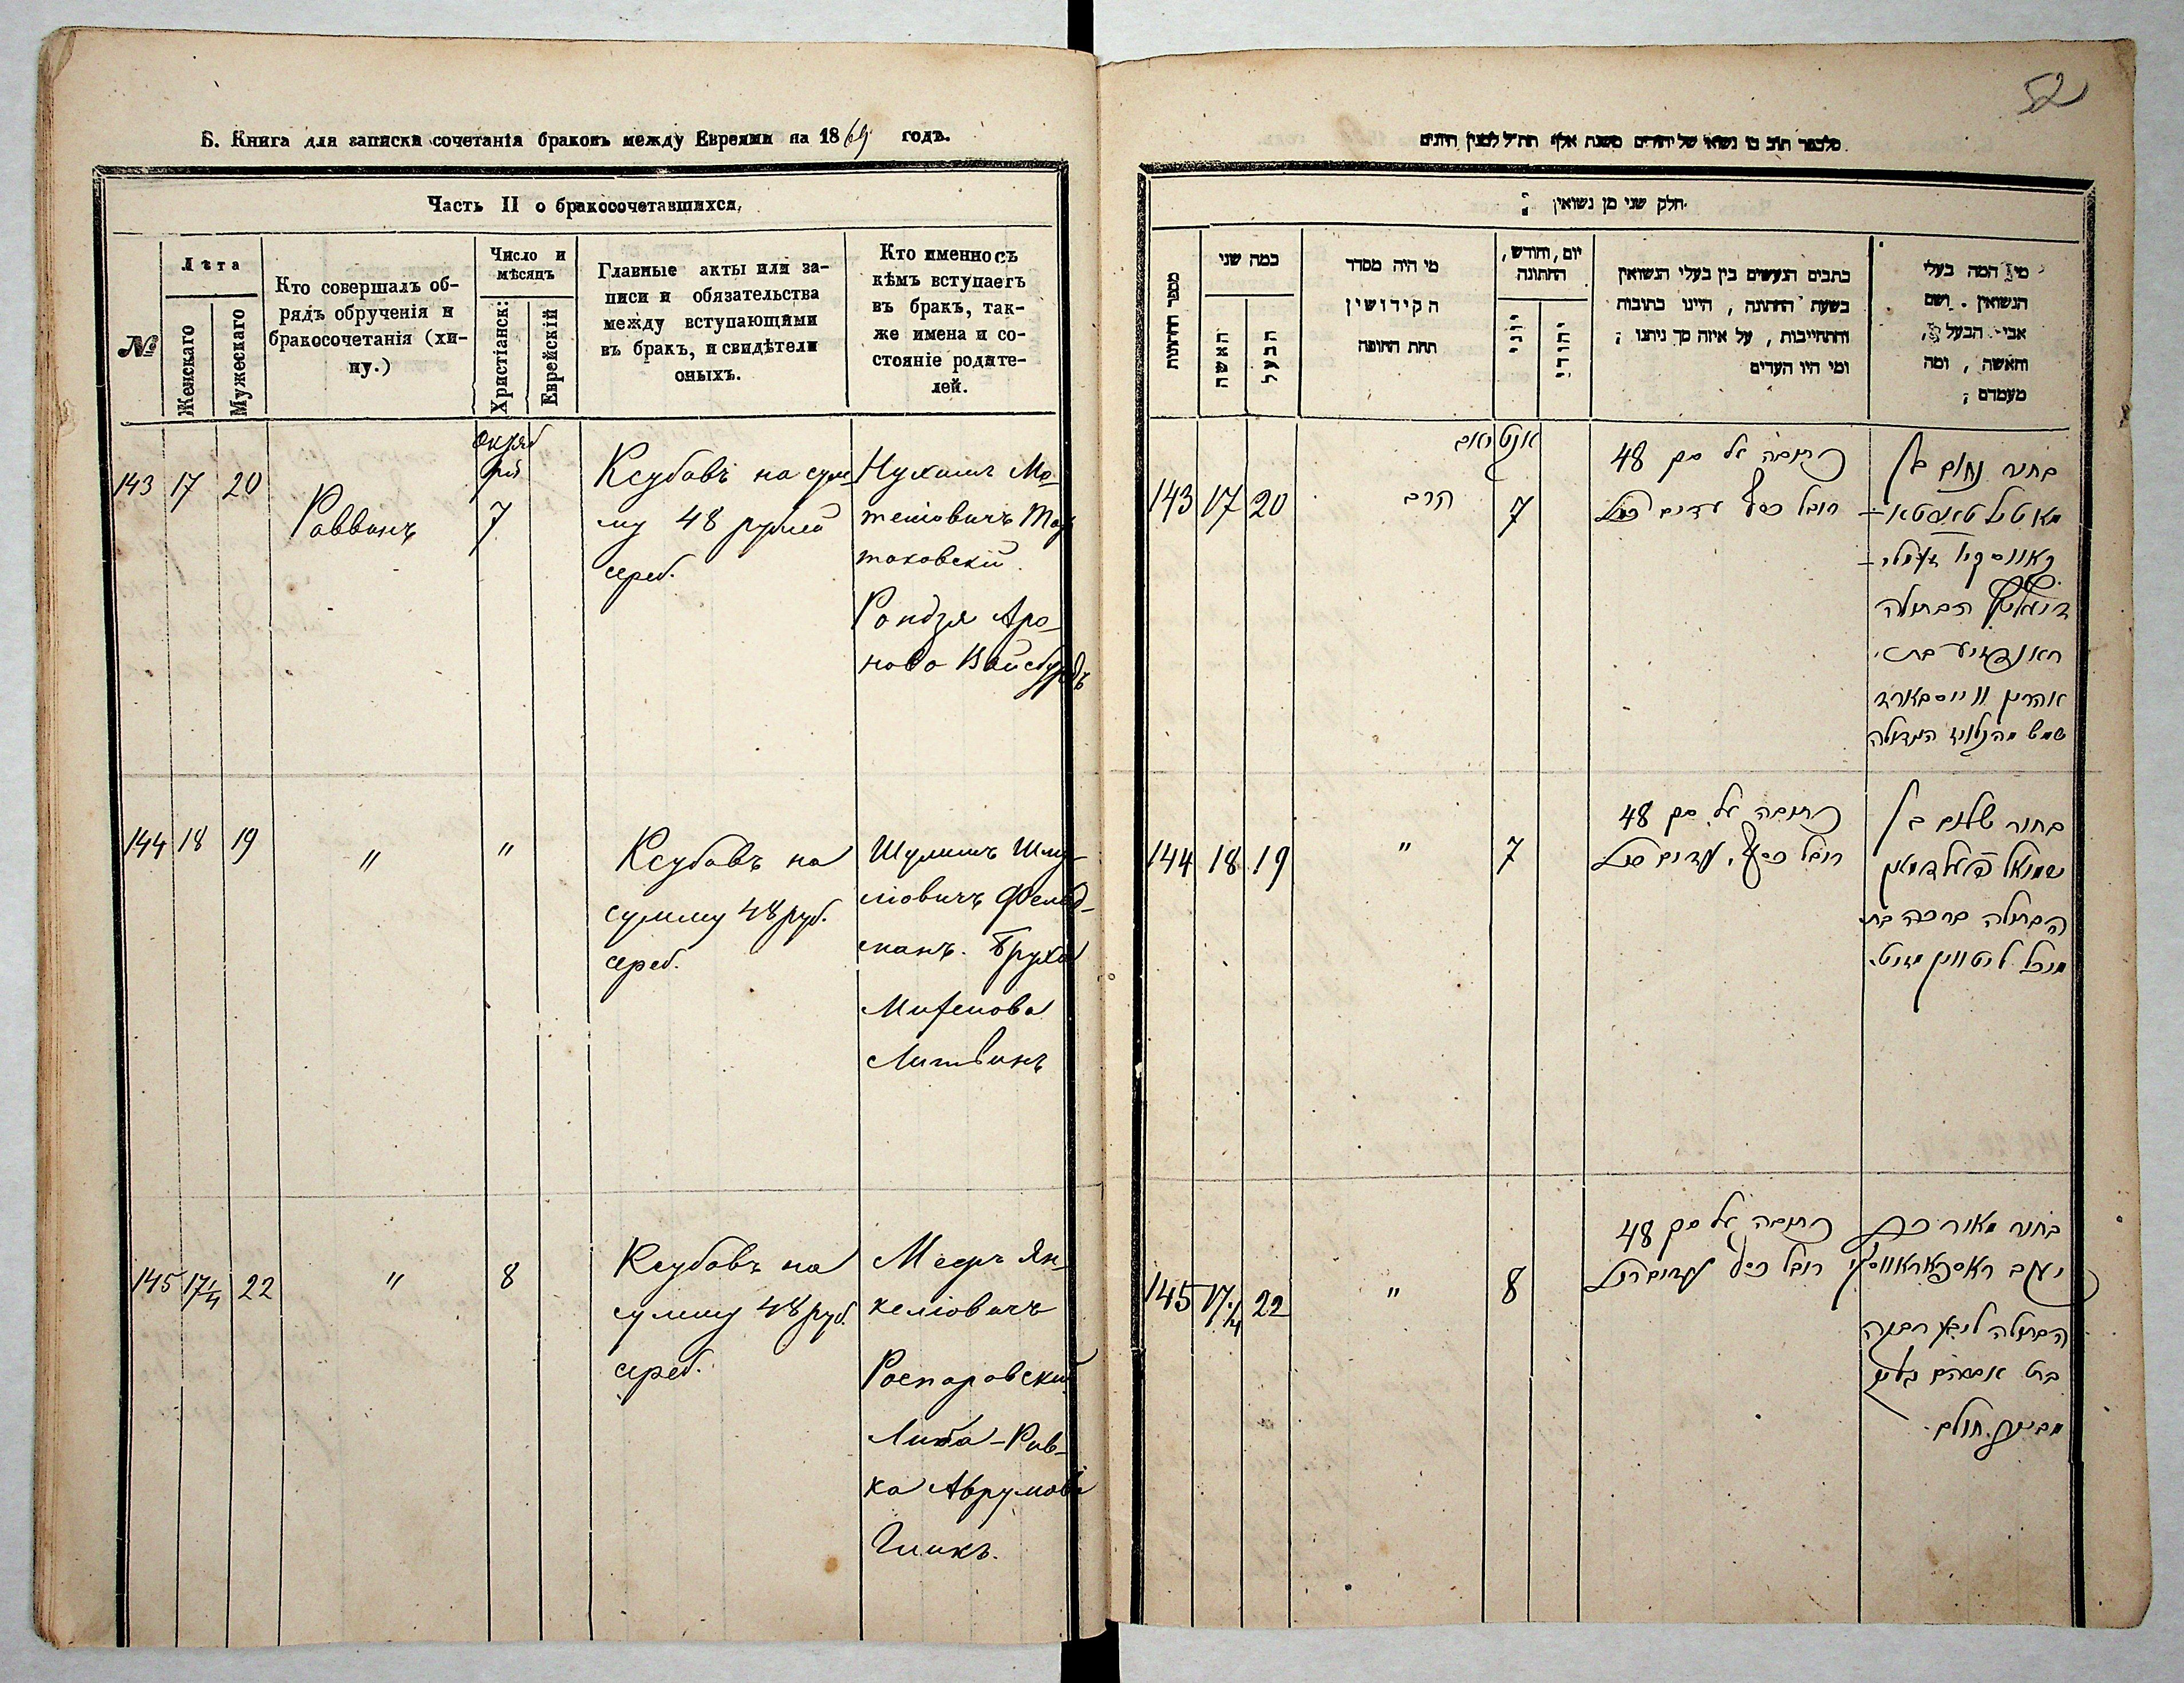 Б. Книга для записки сочетанія браковъ между Евреями на 1869 годъ.
Часть II о бракосочетавшихся,
№
Лѣта
Женскаго
Мужескаго
Кто совершалъ об-
рядъ обрученія и
бракосочетанія (хи-
пу.)
Число и
мѣсяцъ
Христіанск:
Еврейскій
Главные акты или за-
писи и обязательства
между вступающими
въ бракъ, и свидѣтели
оныхъ.
Кто именно съ
кѣмъ вступаетъ
въ бракъ, так-
же имена и со-
стояніе родите-
лей.
143 17 20
Раввинъ
Октяб
ря
7
Ксубавъ на сум
му 48 рублей
сереб.
Нухимъ Мо-
теліовичъ
товскій
Рондзя Аро-
нова Вайсбурдъ
144 18 19
"
"
Ксубавъ на
сумму 48 руб.
сереб.
Шулимъ Шму-
ліовичъ Фельд-
манъ. Бруха
Михелова
Литвинъ
145 17¼ 22
"
8
Ксубавъ на
сумму 48 руб.
сереб.
Мееръ Ян-
келіовичъ
Роспаровский
Либа-Рив-
ка Аврумова
Гликъ.
52
חלק שני מן נשואין ;
מספר החתונות
כמה שני
האשה
הבעל
מי היה מסדר
הקידושין
תחת החופה
יום, וחודש,
החתונה
יוני
יהודי
כתבים הנעשים בין בעלי הנשואין
בשעת החתונה, היינו כתובות
והתחייבות, על איזה סך ניתנו ;
ומי היו העדים
מי המה בעלי
הנשואין. ושם
אבי הבעל,
והאשה, ומה
מעמדם ;
143 17 20
הרב
7
כתובה על סך 48
רובל כסף עדים
בחור נחום בן
הבתולה
בת
אהרן ווייסבורד
144 18 19
"
7
כתובה על סך 48
רובל כסף, עדים
בחור שלום בן
שמואל פעלדמאן
הבתולה ברכה בת
מיכל ליטווין
145 17¼ 22
"
8
כתובה על סך 48
רובל כסף עדים
בחור מאיר בן
יעקב ראספאראווסקי
הבתולה ליבא רבקה
בת אברהם גליק